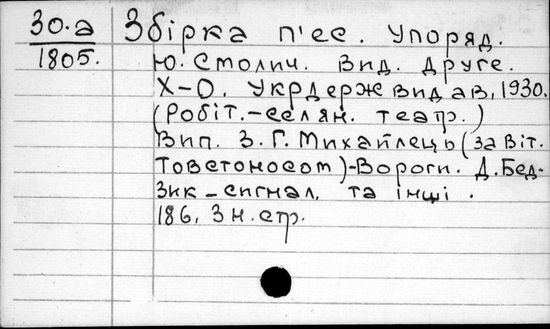 30.а
1805.
Збірка п'єс. Упоряд.
Ю. Столич. Вид. друге.
Х-О. Укрдержвидав, 1930.
(Робіт.-селян. театр.)
Вип. 3. Г. Михайлець (за Віт.
Товстоносом)-Вороги. Д. Бед-
зик-сигнал, та інші.
186, 3 н. стр.